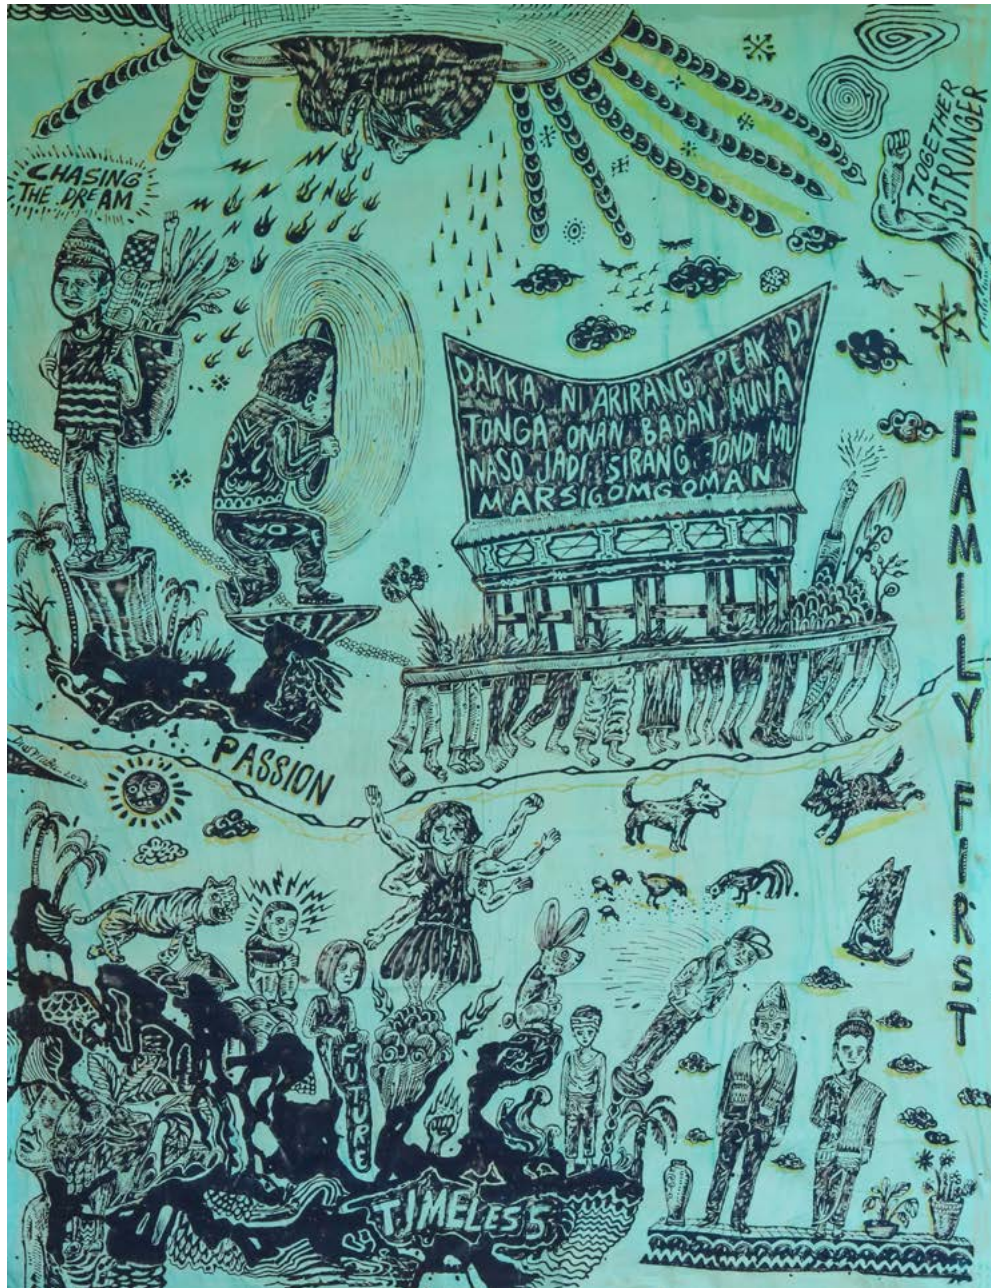 CHASING
THE DREAM
TOGETHER
STRONGER
DAKKA NI ARIRANG PEAK DI
TONGA ONAN BADAN MUNA
NASO JADI SIRANG TONDI MU
MARSIGOMGOMAN
FAMILY FIRST
PASSION
FUTURE
TIMELESS